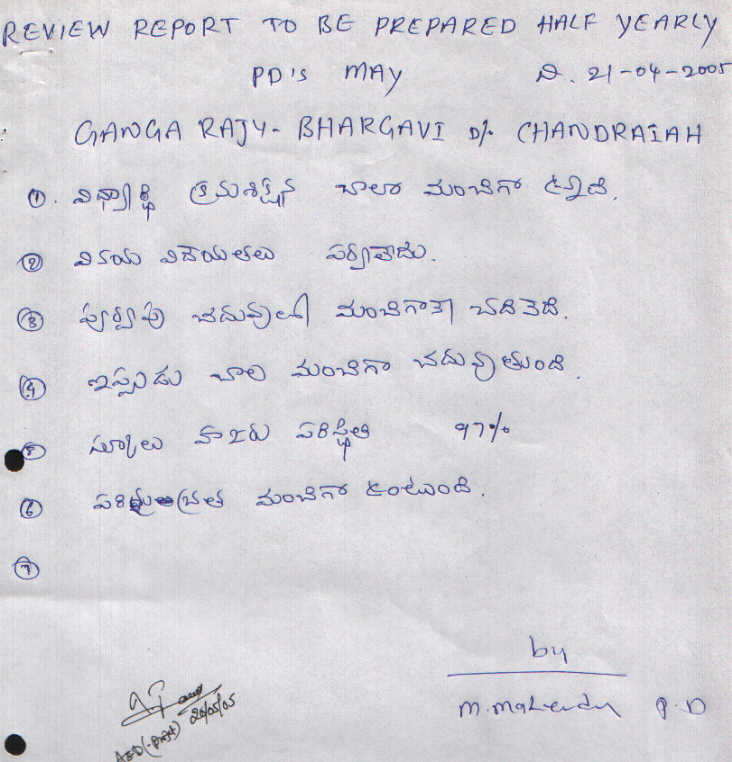 REVIEW REPORT TO BE PREPARED HALF YEARLY
PD'S MAY ది. 21-04-2005
GANGA RAJU- BHARGAVI D/o CHANDRAIAH
1. విద్యార్థి క్రమశిక్షన చాలా మంచిగా ఉన్నది.
2 వినయ విదేయతలు పర్వాలేదు.
3 పూర్వపు చదువులో మంచిగానే చదివెది.
4 ఇప్పుడు చాల మంచిగా చదువుతుంది.
5 స్కూలు హాజరు పరిస్థితి 97%
6 పరిశుభ్రత మంచిగా ఉంటుంది.
7
by
M. Mahendu P.D
20/05/05